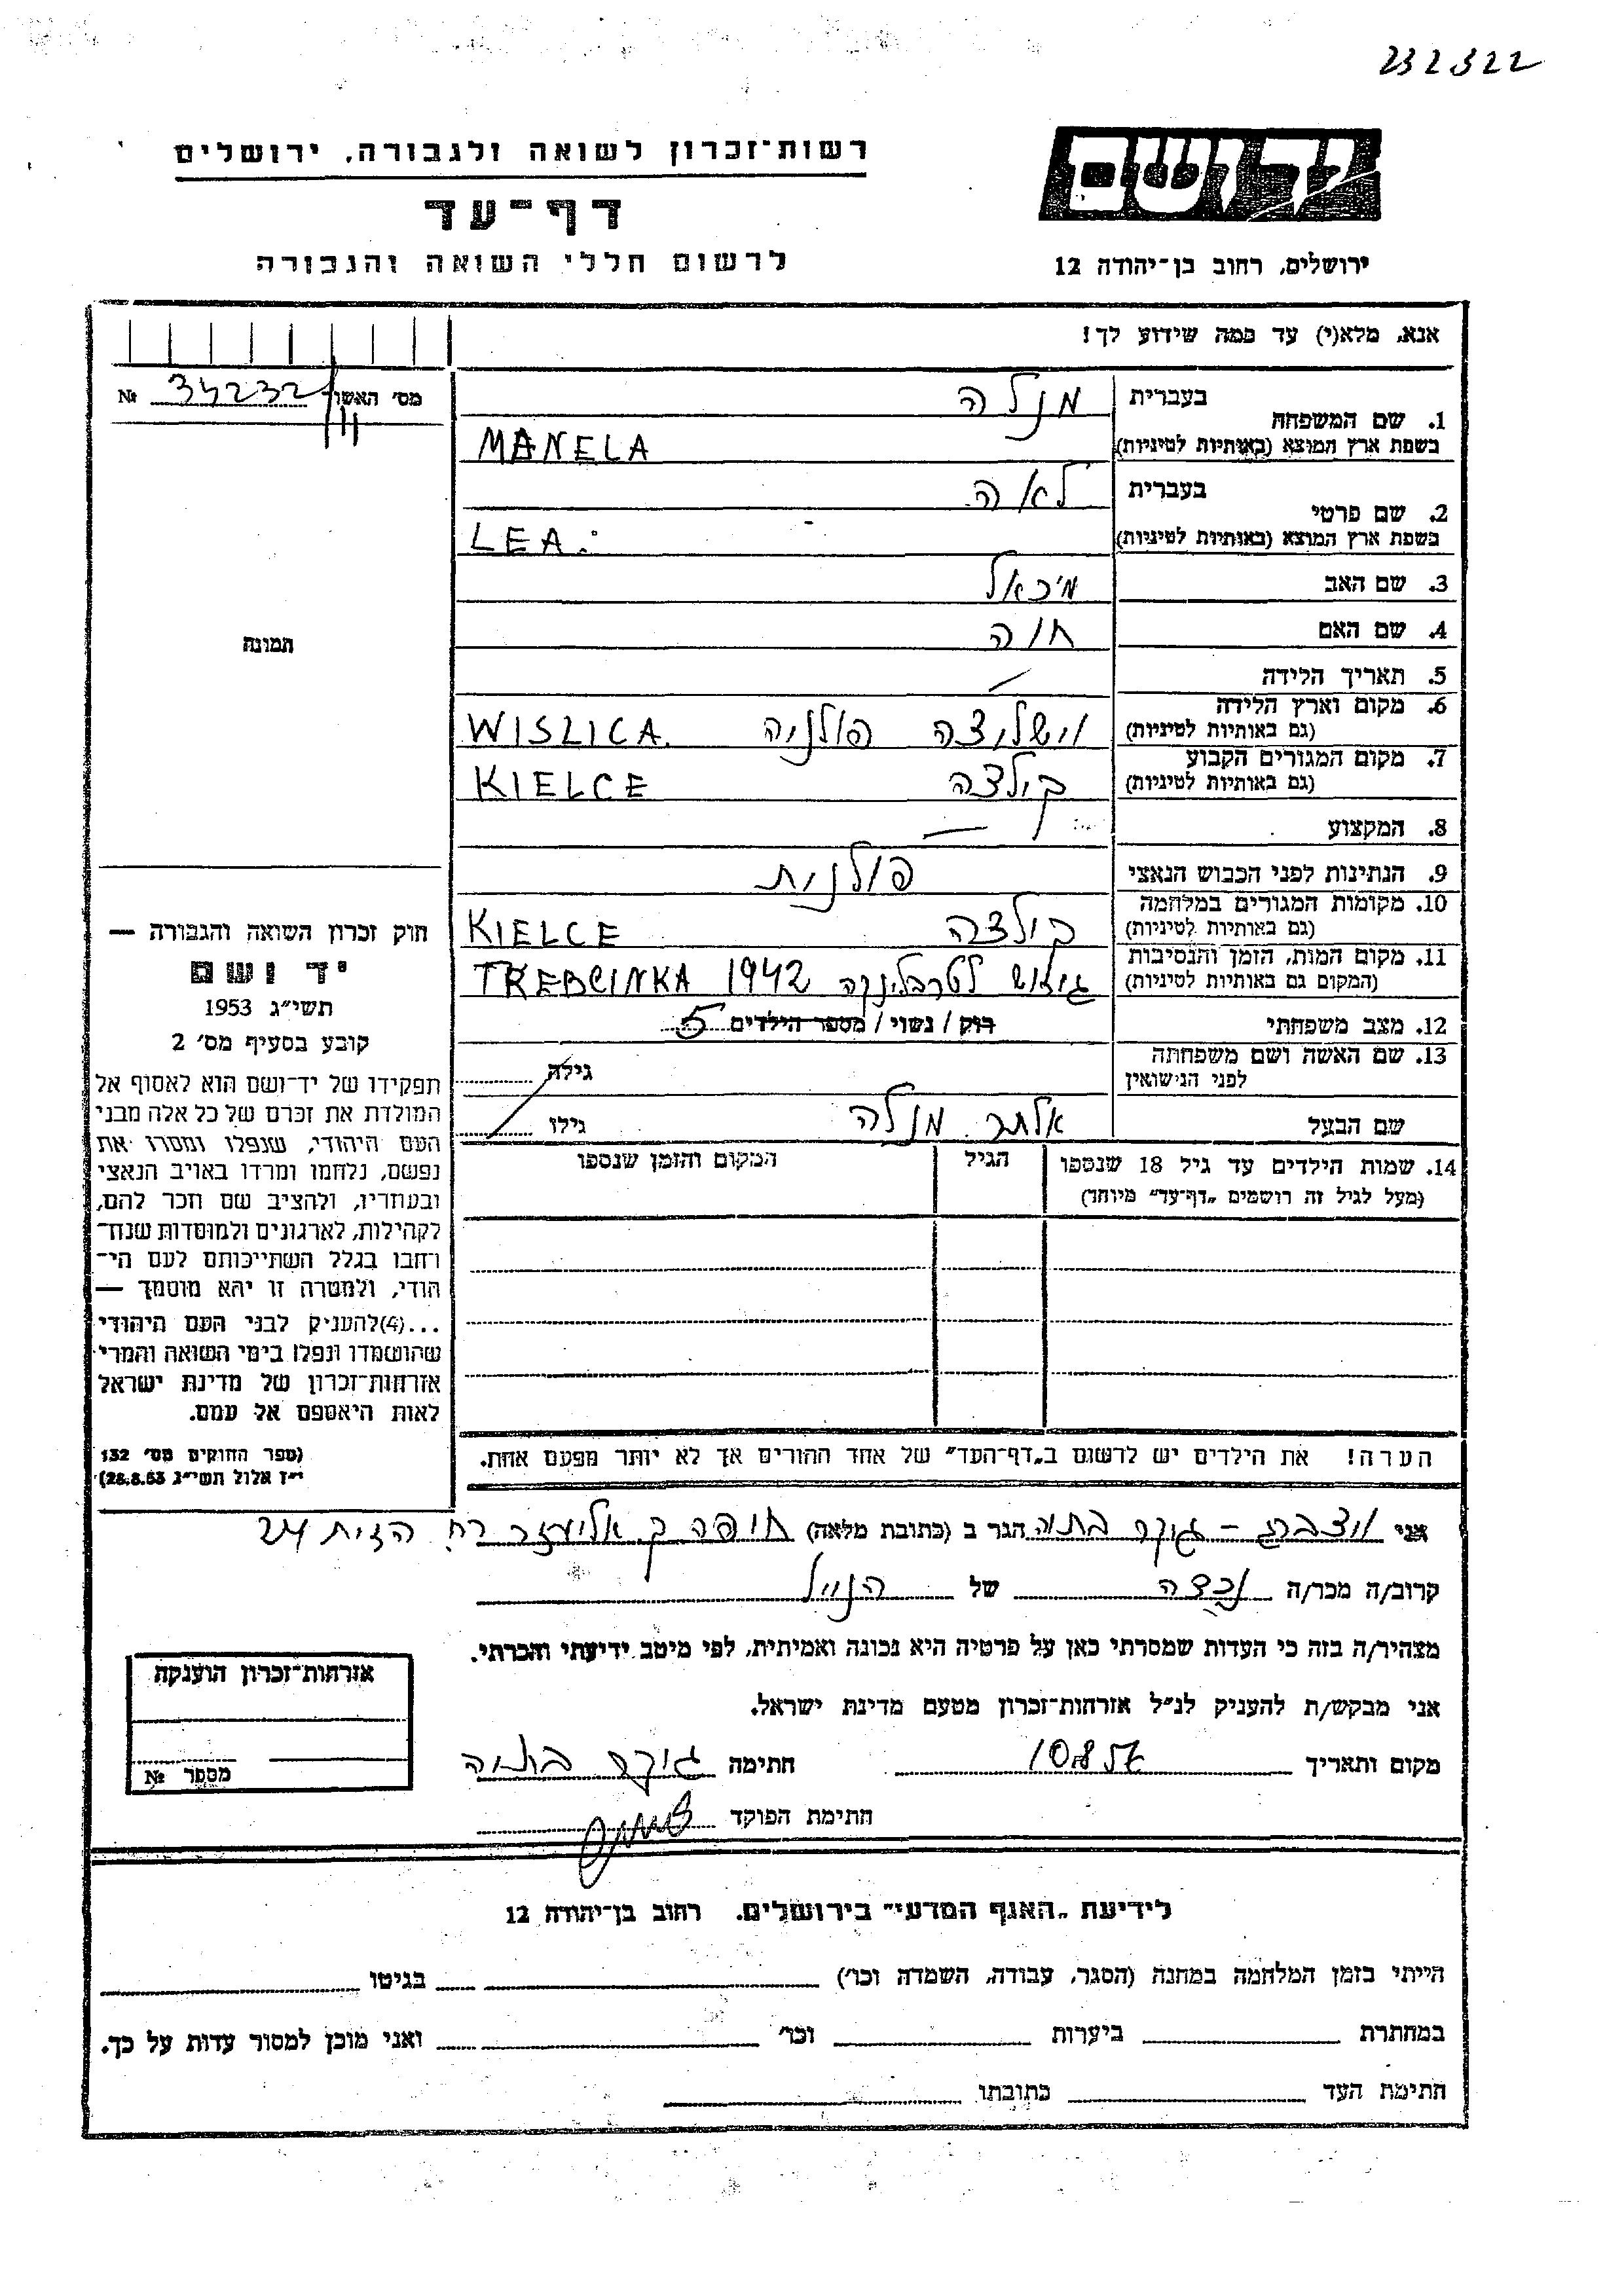 232322
רשות־זכרון לשואה ולגבורה, ירושלים
יד ושם
דף־עד
לרשום חללי השואה והגבורה
ירושלים, רחוב בן־יהודה 12
אנא, מלא(י) עד כמה שידוע לך!
מס׳ האשור № 34232
1. שם המשפחה בעברית מנלה
בשפת ארץ המוצא (באותיות לטיניות) MANELA
2. שם פרטי בעברית לאה
בשפת ארץ המוצא (באותיות לטיניות) LEA
3. שם האב מיכאל
4. שם האם חוה
תמונה
5. תאריך הלידה —
6. מקום וארץ הלידה (גם באותיות לטיניות) וישליצה פולניה WISLICA
7. מקום המגורים הקבוע (גם באותיות לטיניות) קילצה KIELCE
8. המקצוע —
9. הנתינות לפני הכבוש הנאצי פולנית
10. מקומות המגורים במלחמה (גם באותיות לטיניות) קילצה KIELCE
11. מקום המות, הזמן והנסיבות (המקום גם באותיות לטיניות) גירוש לטרבלינקה 1942 TREBLINKA
12. מצב משפחתי רוק / נשוי / מספר הילדים 5
13. שם האשה ושם משפחתה לפני הנישואין גילה
שם הבעל אלתר מנלה גילו
14. שמות הילדים עד גיל 18 שנספו (מעל לגיל זה רושמים „דף־עד״ מיוחד) הגיל המקום והזמן שנספו
חוק זכרון השואה והגבורה —
יד ושם
תשי״ג 1953
קובע בסעיף מס׳ 2
תפקידו של יד־ושם הוא לאסוף אל
המולדת את זכרם של כל אלה מבני
העם היהודי, שנפלו ומסרו את
נפשם, נלחמו ומרדו באויב הנאצי
ובעוזריו, ולהציב שם וזכר להם,
לקהילות, לארגונים ולמוסדות שנח־
רבו בגלל השתייכותם לעם הי־
הודי, ולמטרה זו יהא מוסמך —
...(4) להעניק לבני העם היהודי
שהושמדו ונפלו בימי השואה והמרי
אזרחות־זכרון של מדינת ישראל
לאות היאספם אל עמם.
(ספר החוקים מס׳ 132
י״ז אלול תשי״ג 28.8.53)
הערה! את הילדים יש לרשום ב„דף־העד״ של אחד ההורים אך לא יותר מפעם אחת.
אני בתיה הגר ב (כתובת מלאה) חיפה ק. אליעזר רח הזית 24
קרוב/ה מכר/ה נכדה של הנ״ל
מצהיר/ה בזה כי העדות שמסרתי כאן על פרטיה היא נכונה ואמיתית, לפי מיטב ידיעתי והכרתי.
אני מבקש/ת להעניק לנ״ל אזרחות־זכרון מטעם מדינת ישראל.
מקום ותאריך חתימה בתיה
חתימת הפוקד
אזרחות־זכרון הוענקה
מספר №
לידיעת „האגף המדעי״ בירושלים, רחוב בן־יהודה 12
הייתי בזמן המלחמה במחנה (הסגר, עבודה, השמדה וכו׳) בגיטו
במחתרת ביערות וכו׳ ואני מוכן למסור עדות על כך.
חתימת העד כתובתו